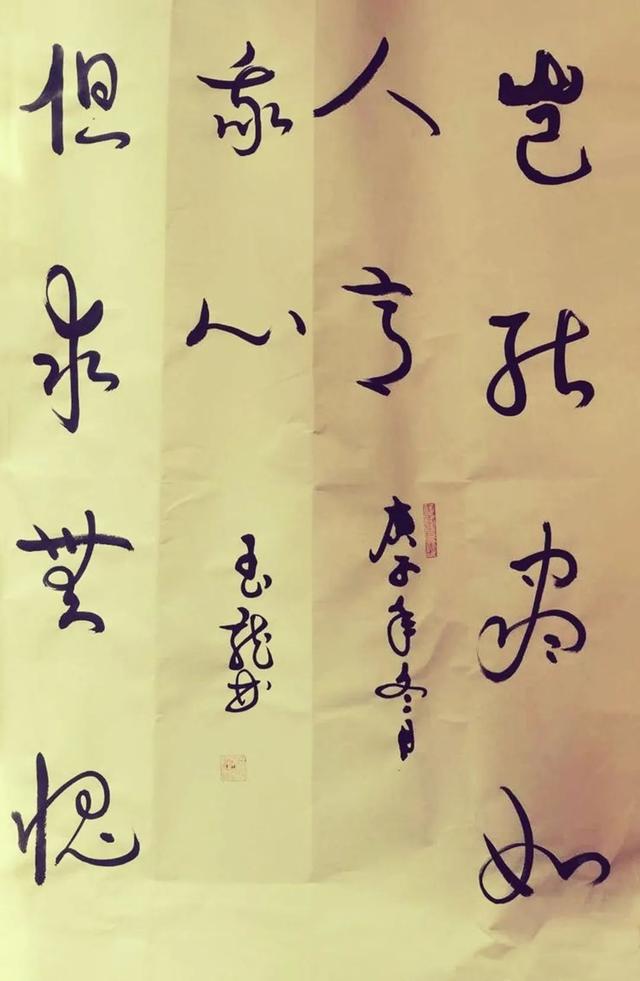 岂能尽如
人意
庚子年冬月
但求無愧
我心
玉龙书